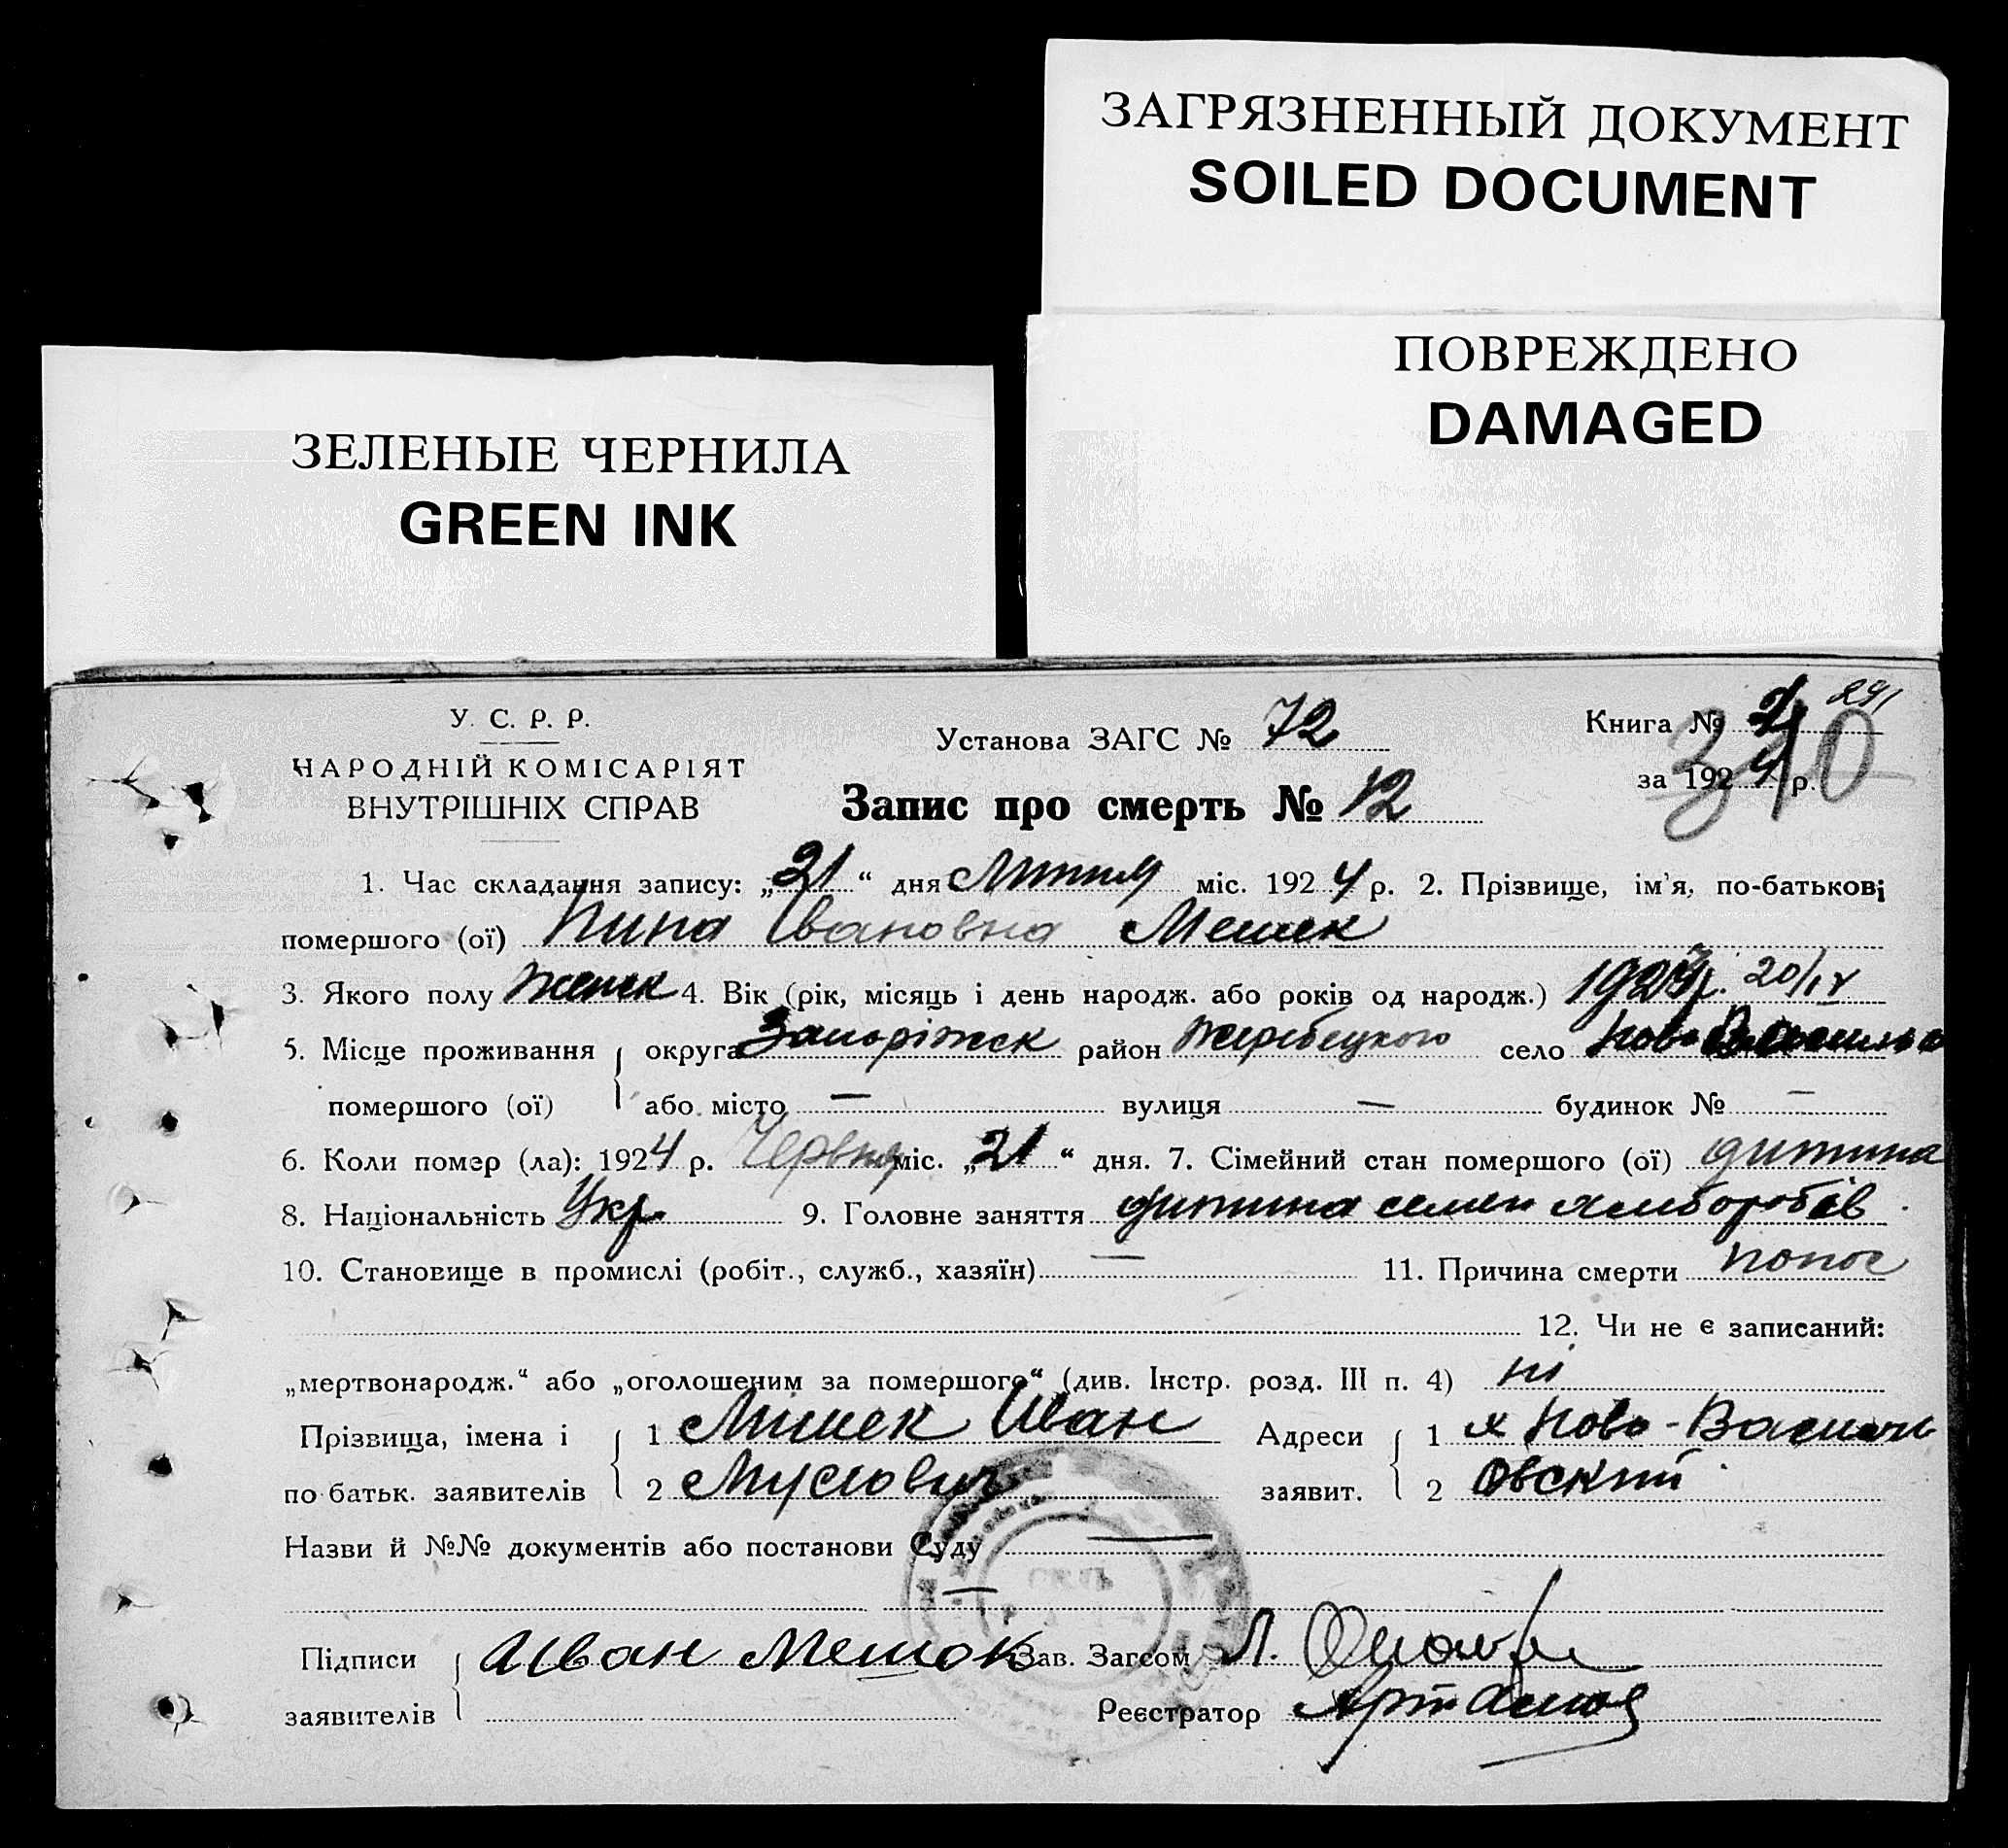 ЗАГРЯЗНЕННЫЙ ДОКУМЕНТ
SOILED DOCUMENT
ПОВРЕЖДЕНО
DAMAGED
ЗЕЛЕНЫЕ ЧЕРНИЛА
GREEN INK
У. С. Р. Р.
НАРОДНІЙ КОМІСАРІЯТ
ВНУТРІШНІХ СПРАВ
Установа ЗАГС № 72
Запис про смерть № 12
Книга № 291
340
за 1924 р.
1. Час складання запису: „21“ дня міс. 1924 р. 2. Прізвище, ім'я, по-батькові
помершого (ої) Нина Ивановна Мешек
3. Якого полу женск 4. Вік (рік, місяць і день народж. або років од народж.) 20/IV
5. Місце проживання округа Запоріжск район Жеребецкого село Ново Василь
помершого (ої) або місто — вулиця — будинок № —
6. Коли помер (ла): 1924 р. Червня міс. „21“ дня. 7. Сімейний стан помершого (ої) дитина
8. Національність Укр. 9. Головне заняття дитина семьи хлиборобів
10. Становище в промислі (робіт., служб., хазяїн) — 11. Причина смерти понос
12. Чи не є записаний:
„мертвонародж.“ або „оголошеним за помершого“ (див. Інстр. розд. III п. 4) ні
Прізвища, імена і 1 Мишек Иван Адреси 1 х Ново-Василь
по батьк. заявителів 2 Мусіович заявит. 2 овский
Назви й №№ документів або постанови Суду —
—
Підписи Иван Мешок Зав. Загсом Л.
заявителів Реєстратор